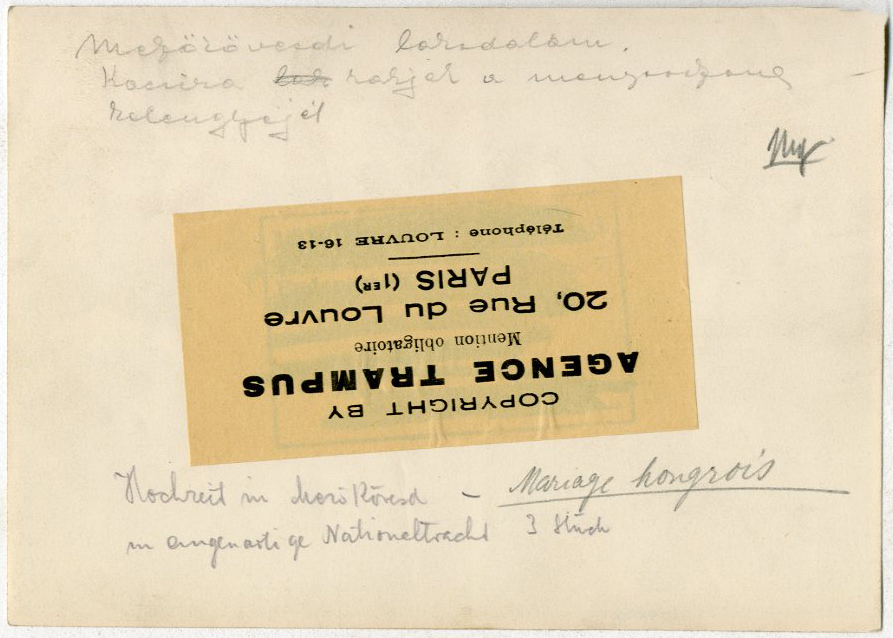 Mezőkövesdi lakodalom.
Kocsira rakják a menyasszony
kelengyéjét
COPYRIGHT BY
AGENCE TRAMPUS
Mention obligatoire
20, Rue du Louvre
PARIS (1ER)
Téléphone : LOUVRE 16-13
Hochzeit in Mezőkövesd – Mariage hongrois
in eigenartige Nationaltracht 3 Stück